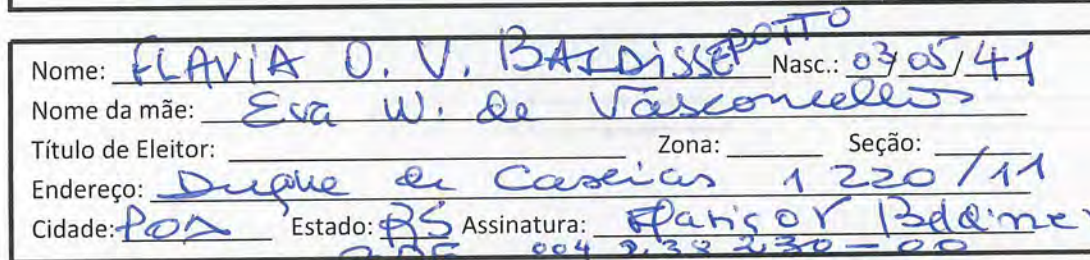 Nome: FLAVIA O. V. BALDISSEROTTO Nasc.: 03/05/41
Nome da mãe: Eva W. de Vasconcellos
Título de Eleitor: Zona: Seção:
Endereço: Duque de Caxias 1220/11
Cidade: POA Estado: RS Assinatura: